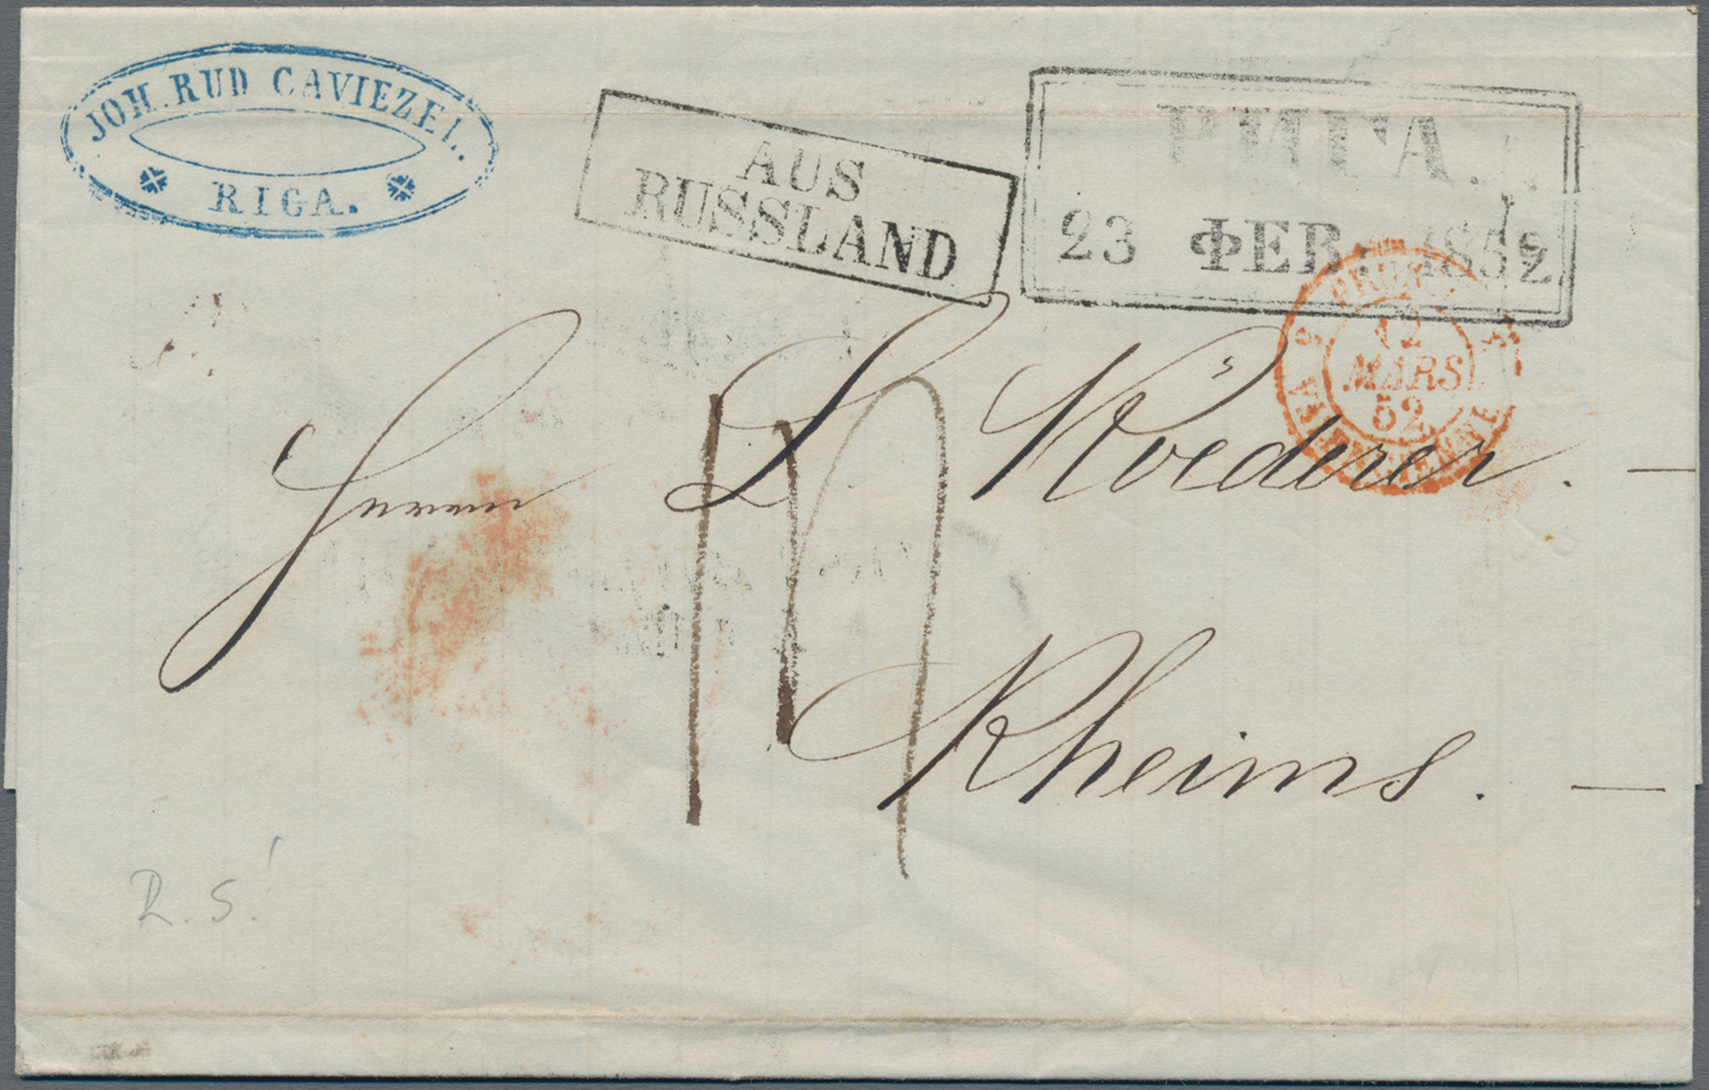 JOH. RUD CAVIEZEL.
RIGA.
AUS
RUSSLAND
РИГА.
23 ФЕВ. 1852
12
MARS
52
VALENCIENNES
Herrn L Roederer. —
Rheims. —
R. S!